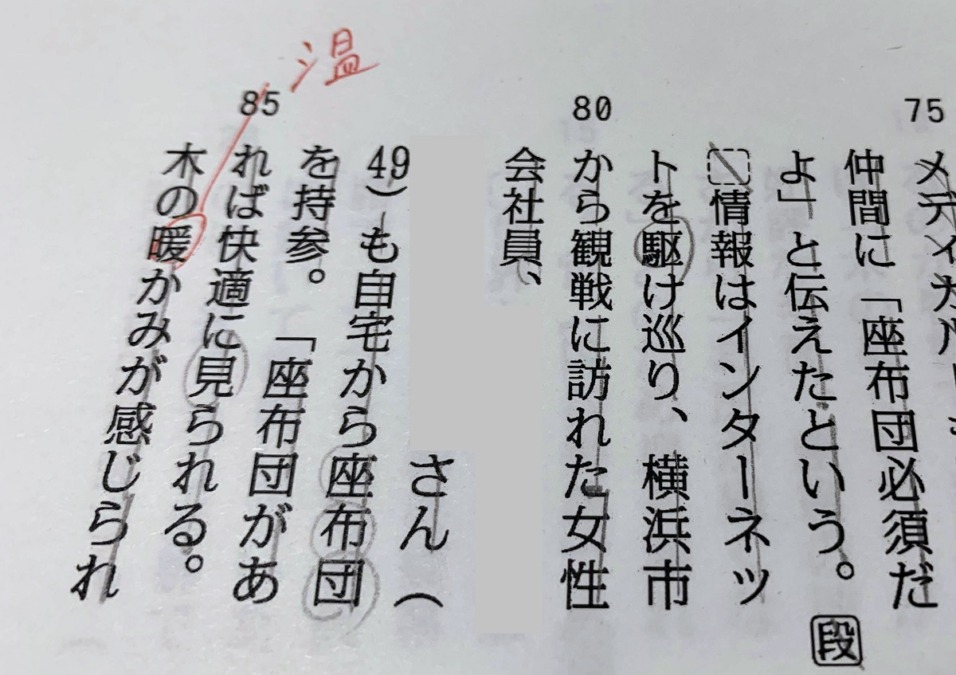 75
メディカル
仲間に「座布団必須だ
よ」と伝えたという。
段
情報はインターネッ
トを駆け巡り、横浜市
80
から観戦に訪れた女性
会社員、
さん（
49）も自宅から座布団
を持参。「座布団があ
85
れば快適に見られる。
木の暖かみが感じられ
温